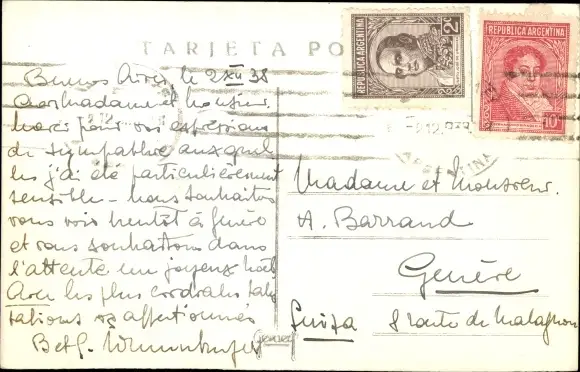 TARJETA PO
REPUBLICA ARGENTINA
2c
REPUBLICA ARGENTINA
10c
Buenos Aires, le 2 XII 38
Chers Madame et Monsieur.
Merci pour vos expressions
de sympathie auxquel
les j'ai été particulièrement
sensible - nous souhaitons
vous voir bientôt à Genève
et vous souhaitons dans
l'attente un joyeux Noël
Avec les plus cordiales salu
tations vos affectionnés
Madame et Monsieur.
A. Barrand
Genève
Suiza 8 route de Malagnou